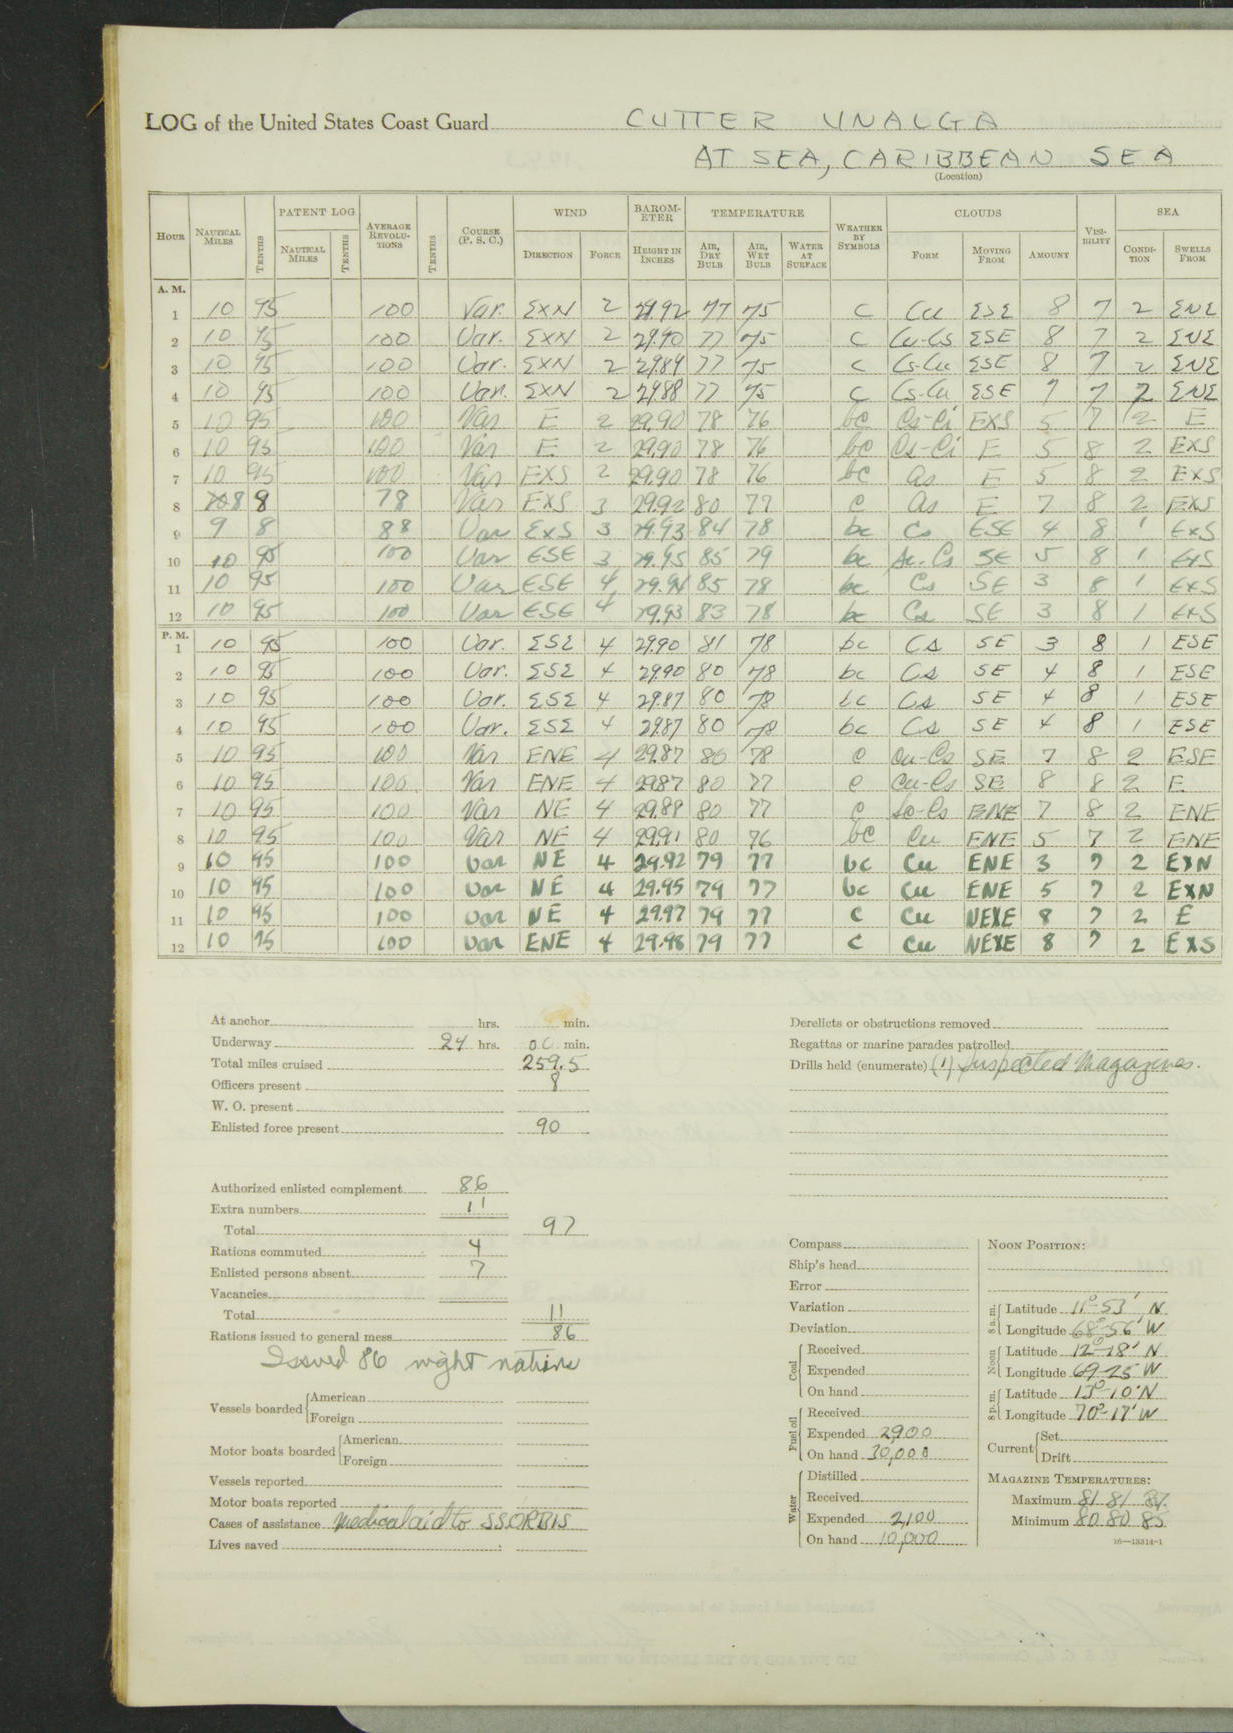 LOG of the United States Coast Guard CUTTER UNALGA
AT SEA, CARIBBEAN SEA
(Location)
HOUR NAUTICAL MILES TENTHS PATENT LOG NAUTICAL MILES TENTHS AVERAGE REVOLUTIONS TENTHS COURSE (P. S. C.) WIND DIRECTION FORCE BAROMETER HEIGHT IN INCHES TEMPERATURE AIR, DRY BULB AIR, WET BULB WATER AT SURFACE WEATHER BY SYMBOLS CLOUDS FORM MOVING FROM AMOUNT VISIBILITY SEA CONDITION SWELLS FROM
A. M.
1 10 95 100 Var. EXN 2 29.92 77 75 c Cu ESE 8 7 2 ENE
2 10 95 100 Var. EXN 2 29.90 77 75 c Cu-Cs ESE 8 7 2 ENE
3 10 95 100 Var. EXN 2 29.89 77 75 c Cs-Cu ESE 8 7 2 ENE
4 10 95 100 Var. EXN 2 29.88 77 75 c Cs-Cu ESE 7 7 2 ENE
5 10 95 100 Var E 2 29.90 78 76 bc Cs-Ci EXS 5 7 2 E
6 10 95 100 Var E 2 29.90 78 76 bc Cs-Ci E 5 8 2 EXS
7 10 95 100 Var EXS 2 29.90 78 76 bc As E 5 8 2 EXS
8 8 8 78 Var EXS 3 29.92 80 77 c As E 7 8 2 EXS
9 9 8 88 Var EXS 3 29.93 84 78 bc Cs ESE 4 8 1 EXS
10 10 95 100 Var ESE 3 29.95 85 79 bc Ac-Cs SE 5 8 1 EXS
11 10 95 100 Var ESE 4 29.94 85 78 bc Cs SE 3 8 1 EXS
12 10 95 100 Var ESE 4 29.93 83 78 bc Cs SE 3 8 1 EXS
P. M.
1 10 95 100 Var. ESE 4 29.90 81 78 bc Cs SE 3 8 1 ESE
2 10 95 100 Var. ESE 4 29.90 80 78 bc Cs SE 4 8 1 ESE
3 10 95 100 Var. ESE 4 29.87 80 78 bc Cs SE 4 8 1 ESE
4 10 95 100 Var. ESE 4 29.87 80 78 bc Cs SE 4 8 1 ESE
5 10 95 100 Var ENE 4 29.87 80 78 c Cu-Cs SE 7 8 2 ESE
6 10 95 100 Var ENE 4 29.87 80 77 c Cu-Cs SE 8 8 2 E
7 10 95 100 Var NE 4 29.89 80 77 c Sc-Cs ENE 7 8 2 ENE
8 10 95 100 Var NE 4 29.91 80 76 bc Cu ENE 5 7 2 ENE
9 10 95 100 Var NE 4 29.92 79 77 bc Cu ENE 3 7 2 EXN
10 10 95 100 Var NE 4 29.95 79 77 bc Cu ENE 5 7 2 EXN
11 10 95 100 Var NE 4 29.97 79 77 c Cu NEXE 8 7 2 E
12 10 95 100 Var ENE 4 29.98 79 77 c Cu NEXE 8 7 2 EXS
At anchor hrs. min.
Underway 24 hrs. 00 min.
Total miles cruised 259.5
Officers present 8
W. O. present
Enlisted force present 90
Authorized enlisted complement 86
Extra numbers 11
Total 97
Rations commuted 4
Enlisted persons absent 7
Vacancies
Total 11
Rations issued to general mess 86
Issued 86 night rations
Vessels boarded American
Foreign
Motor boats boarded American
Foreign
Vessels reported
Motor boats reported
Cases of assistance Medical aid to SS ORBIS
Lives saved
Derelicts or obstructions removed
Regattas or marine parades patrolled
Drills held (enumerate) (1) Inspected Magazines.
Compass
Ship's head
Error
Variation
Deviation
Coal Received
Expended
On hand
Fuel oil Received
Expended 2900
On hand 30,000
Water Distilled
Received
Expended 2,100
On hand 10,000
NOON POSITION:
8 a.m. Latitude 11°-53' N
Longitude 68°-56' W
Noon Latitude 12°-18' N
Longitude 69-25 W
8 p.m. Latitude 13°-10' N
Longitude 70°-17' W
Current Set
Drift
MAGAZINE TEMPERATURES:
Maximum 81 81 87
Minimum 80 80 85
16—13314-1